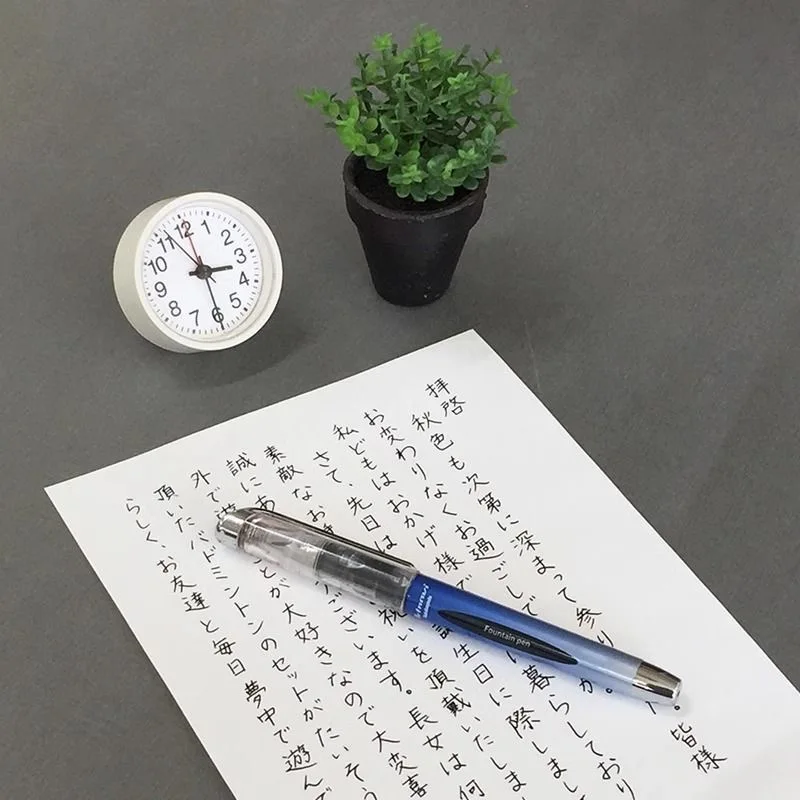 拝啓
秋色も次第に深まって参り 。皆様
お変わりなくお過ごしで か。
私どもはおかげ様で 暮らしており
さて、先日は 誕生日に際しまして
素敵なお 祝いを頂戴いたしまし
誠にあ ございます。長女は何
外で遊 ことが大好きなので大変喜
頂いたバドミントンのセットがたいそう
らしく、お友達と毎日夢中で遊んで
Fountain pen
12
1
2
3
4
5
6
7
8
9
10
11